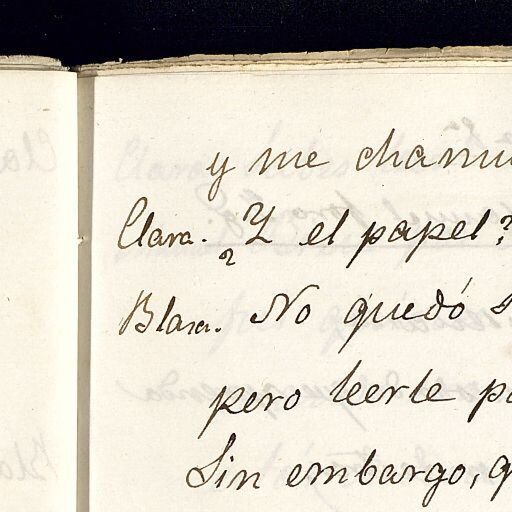 y me chamu
Clara. ¿Y el papel?
Blasa. No quedó
pero leerle
Sin embargo,